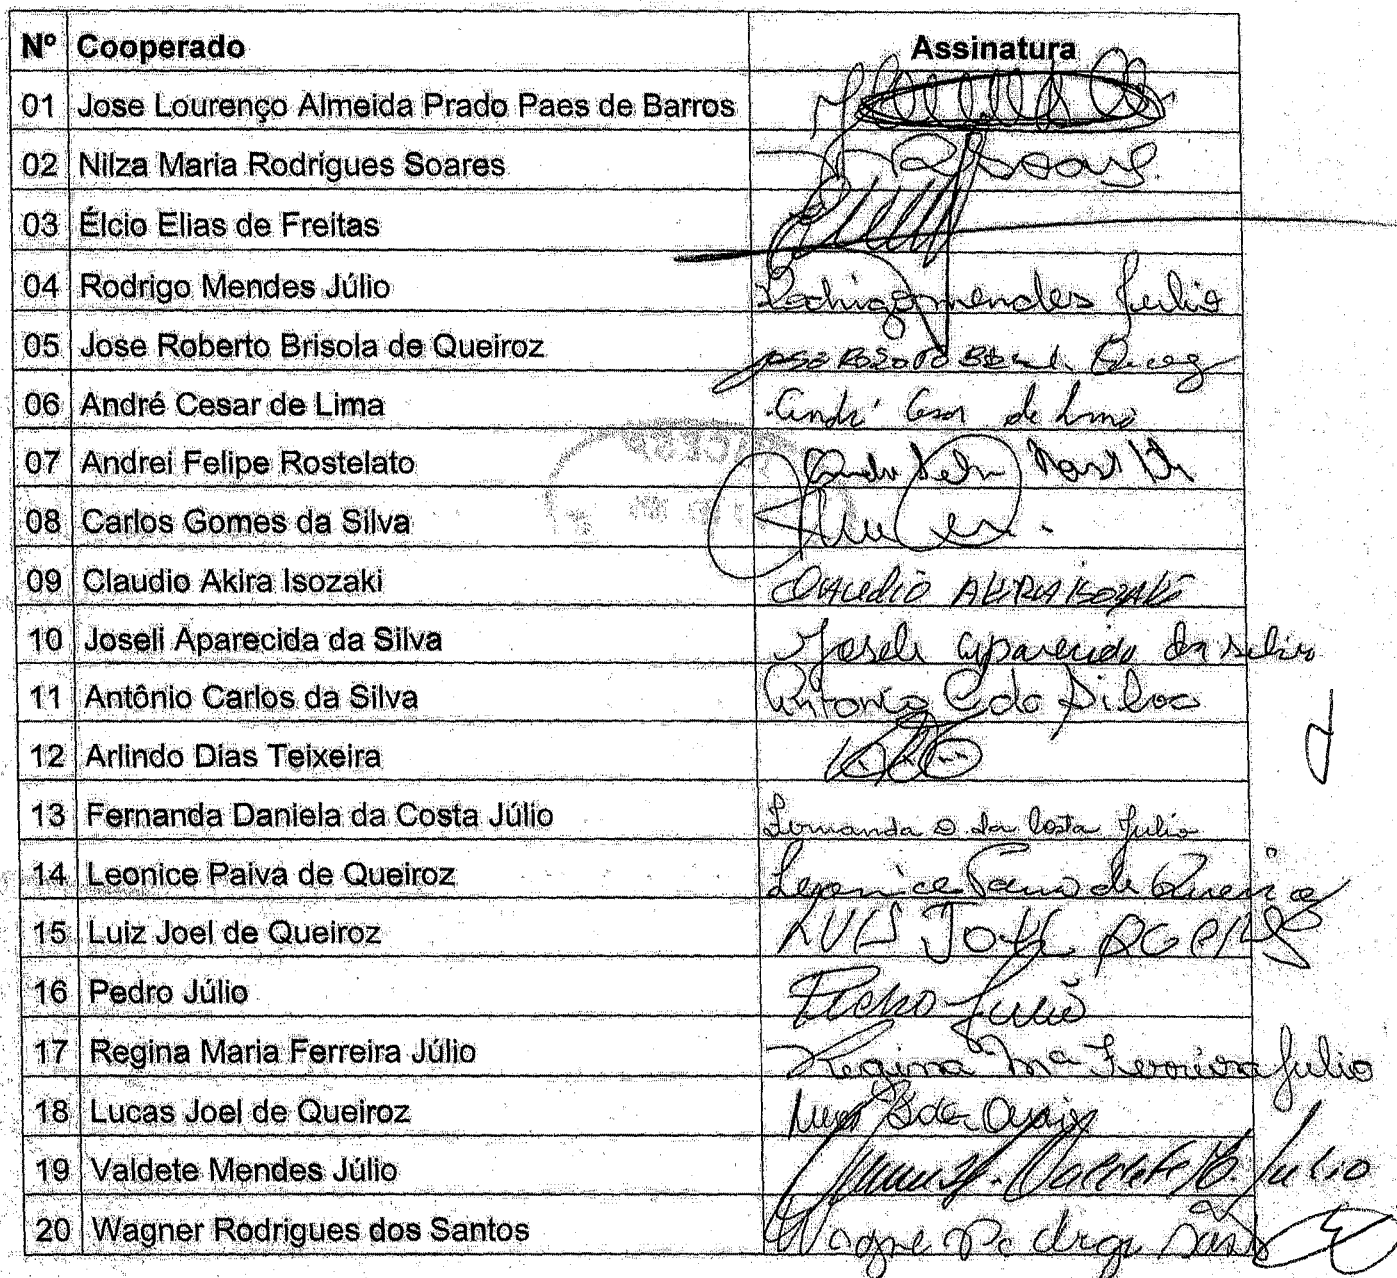 Nº Cooperado Assinatura
01 Jose Lourenço Almeida Prado Paes de Barros
02 Nilza Maria Rodrigues Soares
03 Élcio Elias de Freitas
04 Rodrigo Mendes Júlio Rodrigo mendes Julio
05 Jose Roberto Brisola de Queiroz
06 André Cesar de Lima André Cesar de Lima
07 Andrei Felipe Rostelato
08 Carlos Gomes da Silva
09 Claudio Akira Isozaki CLAUDIO AKIRA ISOZAKI
10 Joseli Aparecida da Silva Joseli aparecida da silva
11 Antônio Carlos da Silva Antonio C da Silva
12 Arlindo Dias Teixeira
13 Fernanda Daniela da Costa Júlio Fernanda D da Costa Julio
14 Leonice Paiva de Queiroz Leonice Paiva de Queiroz
15 Luiz Joel de Queiroz LUIS JOEL
16 Pedro Júlio Pedro Julio
17 Regina Maria Ferreira Júlio Regina Mª Ferreira Julio
18 Lucas Joel de Queiroz
19 Valdete Mendes Júlio Valdete M. Julio
20 Wagner Rodrigues dos Santos